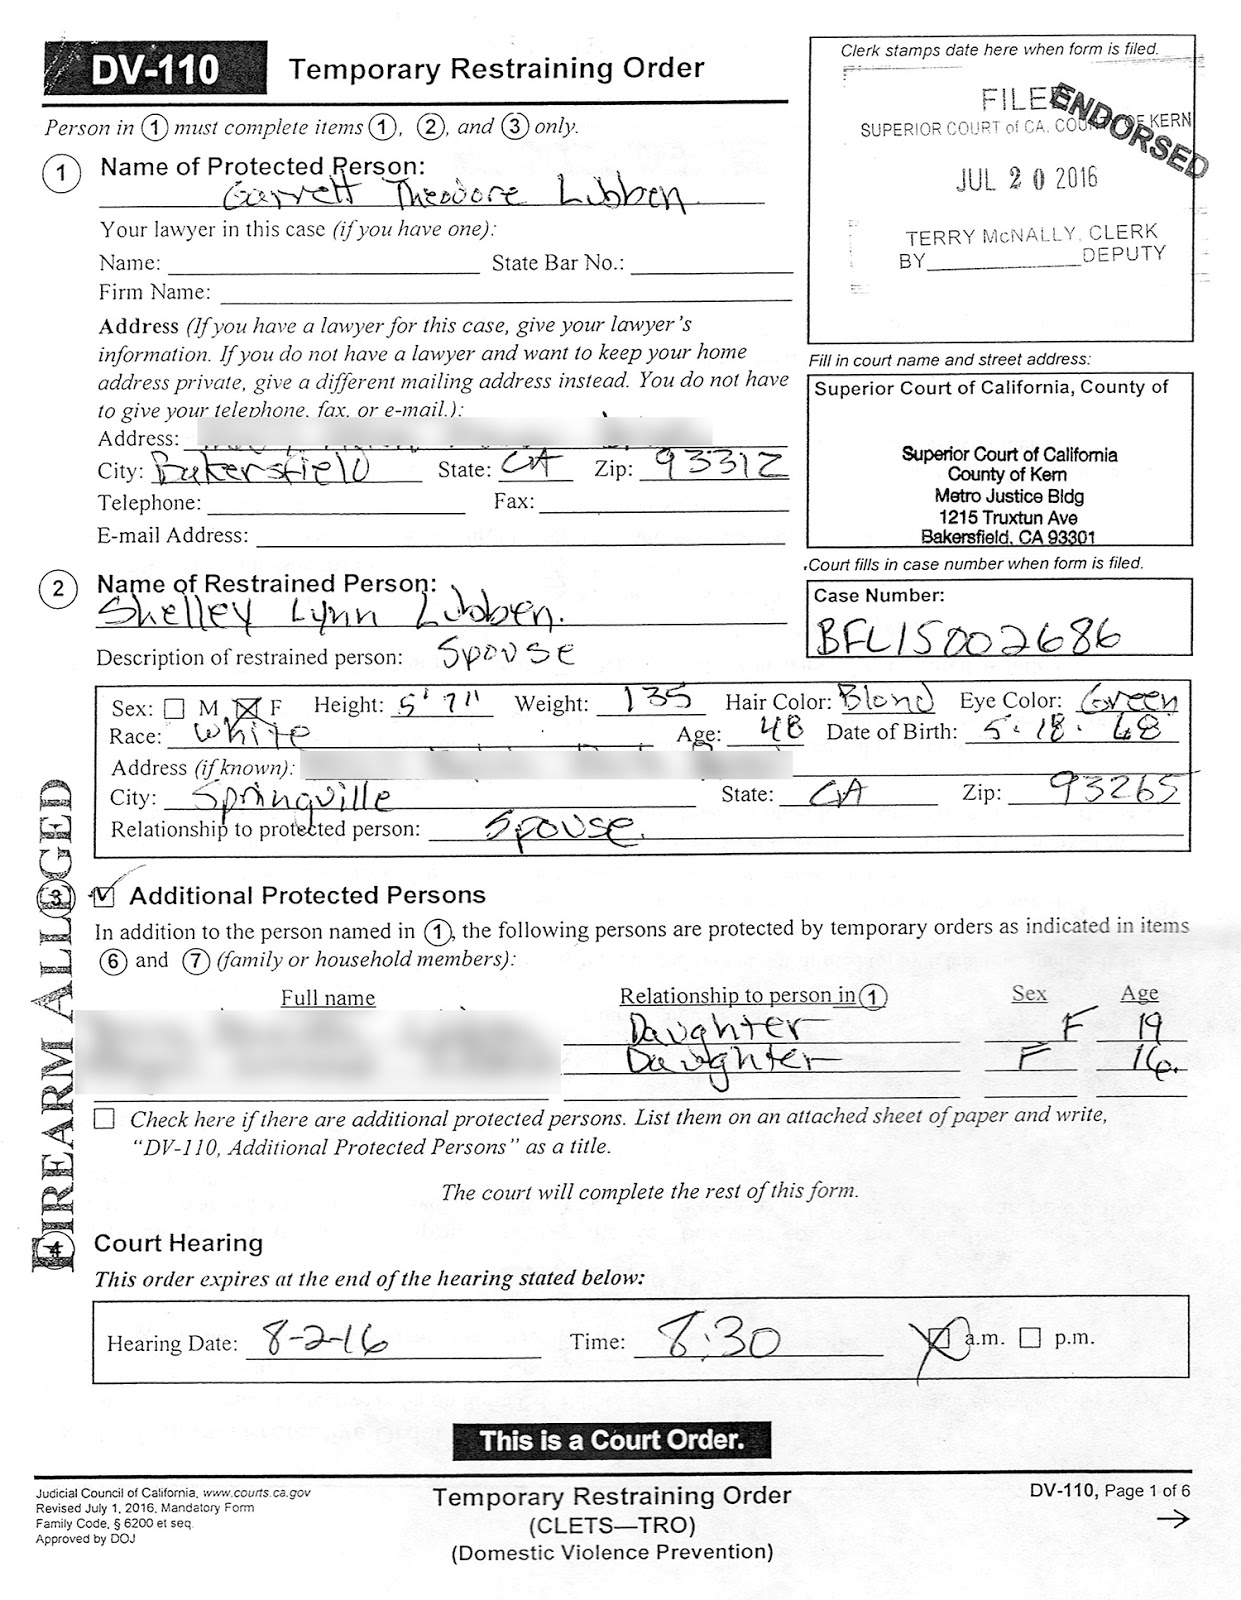 DV-110 Temporary Restraining Order
Clerk stamps date here when form is filed.
FILED
ENDORSED
SUPERIOR COURT of CA. COUNTY OF KERN
JUL 20 2016
TERRY McNALLY, CLERK
BY____________DEPUTY
Person in ① must complete items ①, ②, and ③ only.
① Name of Protected Person:
Garrett Theodore Lubben
Your lawyer in this case (if you have one):
Name: State Bar No.:
Firm Name:
Address (If you have a lawyer for this case, give your lawyer's
information. If you do not have a lawyer and want to keep your home
address private, give a different mailing address instead. You do not have
to give your telephone, fax, or e-mail.):
Address:
City: Bakersfield State: CA Zip: 93312
Telephone: Fax:
E-mail Address:
Fill in court name and street address:
Superior Court of California, County of
Superior Court of California
County of Kern
Metro Justice Bldg
1215 Truxtun Ave
Bakersfield, CA 93301
Court fills in case number when form is filed.
Case Number:
BFL15002686
② Name of Restrained Person:
Shelley Lynn Lubben.
Description of restrained person: Spouse
Sex: M F Height: 5'7" Weight: 135 Hair Color: Blond Eye Color: Green
Race: White Age: 48 Date of Birth: 5-18-68
Address (if known):
City: Springville State: CA Zip: 93265
Relationship to protected person: Spouse.
FIREARM ALLEGED
③ Additional Protected Persons
In addition to the person named in ①, the following persons are protected by temporary orders as indicated in items
⑥ and ⑦ (family or household members):
Full name Relationship to person in ① Sex Age
Daughter F 19
Daughter F 16.
Check here if there are additional protected persons. List them on an attached sheet of paper and write,
"DV-110, Additional Protected Persons" as a title.
The court will complete the rest of this form.
④ Court Hearing
This order expires at the end of the hearing stated below:
Hearing Date: 8-2-16 Time: 8:30 a.m. p.m.
This is a Court Order.
Judicial Council of California, www.courts.ca.gov
Revised July 1, 2016, Mandatory Form
Family Code, § 6200 et seq.
Approved by DOJ
Temporary Restraining Order
(CLETS—TRO)
(Domestic Violence Prevention)
DV-110, Page 1 of 6
→